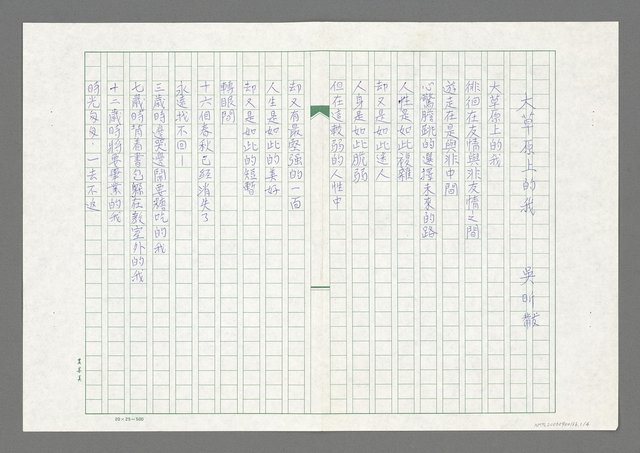 大草原上的我　吳昕
大草原上的我
徘徊在友情與非友情之間
遊走在是與非中間
心驚膽跳的選擇未來的路
人性是如此複雜
却又是如此迷人
人身是如此脆弱
但在這軟弱的人性中
却又有最堅強的一面
人生是如此的美好
却又是如此的短暫
轉眼間
十六個春秋已經消失了
永遠找不回！
三歲時愛哭愛鬧要糖吃的我
七歲時背着書包躲在教室外的我
十二歲時將要畢業的我
時光匆匆，一去不返
20×25=500